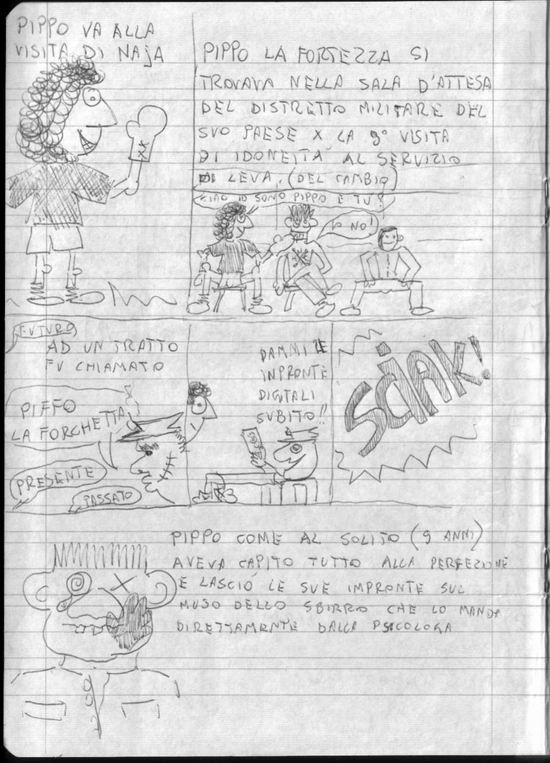 PIPPO VA ALLA
VISITA DI NAJA
PIPPO LA FORTEZZA SI
TROVAVA NELLA SALA D'ATTESA
DEL DISTRETTO MILITARE DEL
SUO PAESE X LA 9° VISITA
DI IDONEITA' AL SERVIZIO
DI LEVA, (DEL CAMBIO)
CIAO IO SONO PIPPO E TU?
IO NO!
FUTURO
AD UN TRATTO
FU CHIAMATO
PIFFO
LA FORCHETTA
PRESENTE
PASSATO
DAMMI LE
INPRONTE
DIGITALI
SUBITO!!
SCIAK!
PIPPO COME AL SOLITO (9 ANNI)
AVEVA CAPITO TUTTO ALLA PERFEZIONE
E LASCIO' LE SUE IMPRONTE SUL
MUSO DELLO SBIRRO CHE LO MANDA
DIRETTAMENTE DALLA PSICOLOGA